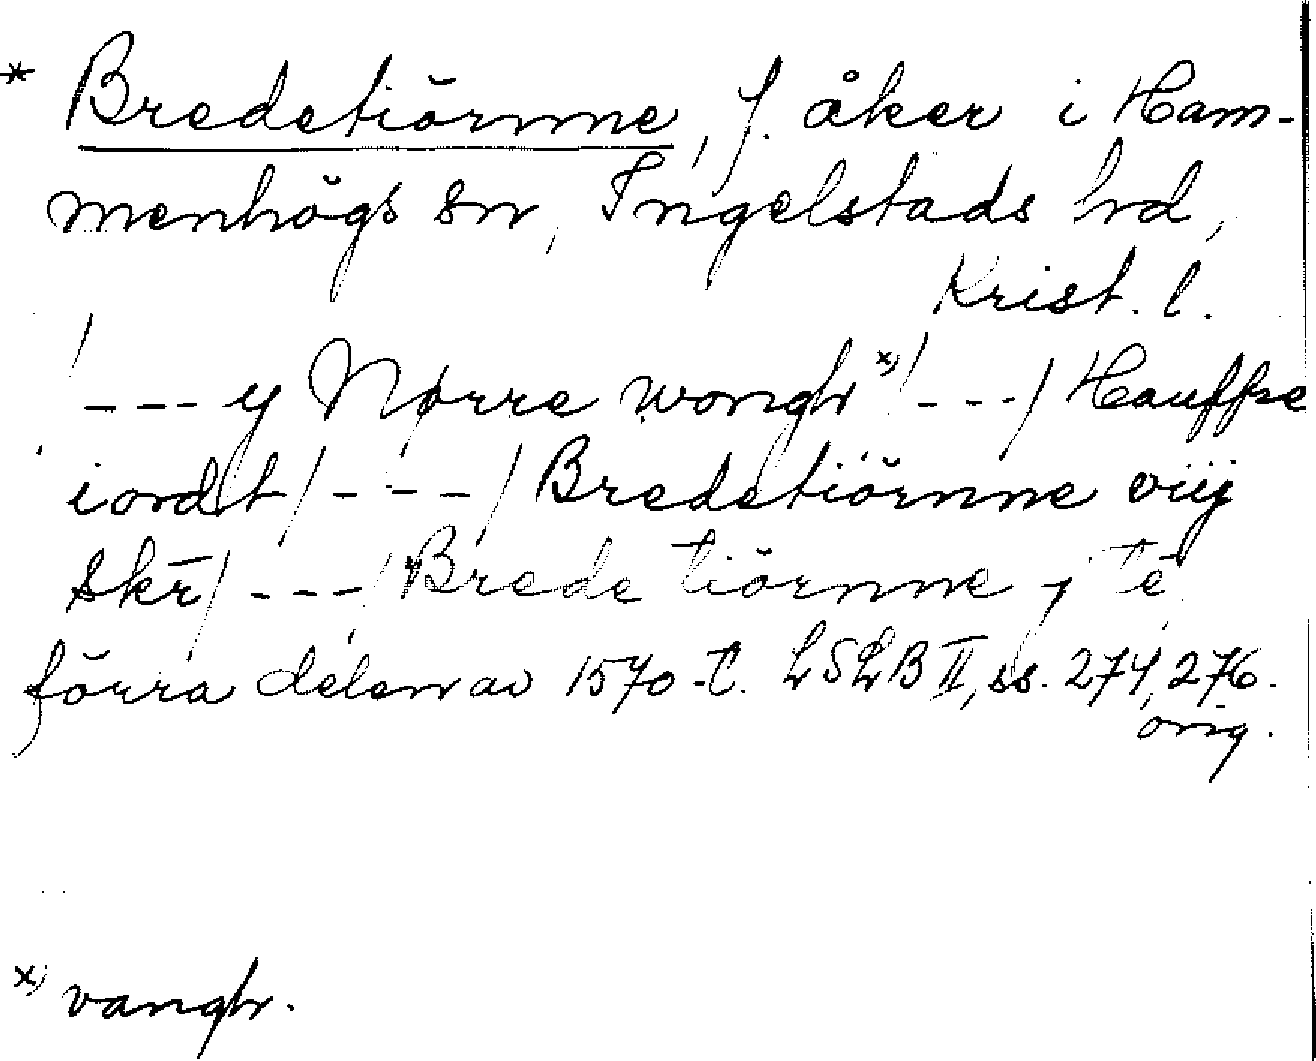 * Bredetiörnne, f. åker i Ham-
menhögs sn, Ingelstads hd,
Krist. l.
/ --- y Nørre wongh x) / --- / Hauffue
iordt / --- / Bredetiörnne viij
Skr̄ / --- / Brede tiörnne j tē
förra delen av 1570-t. LSLB II, ss. 274, 276.
orig.
x) vangh.